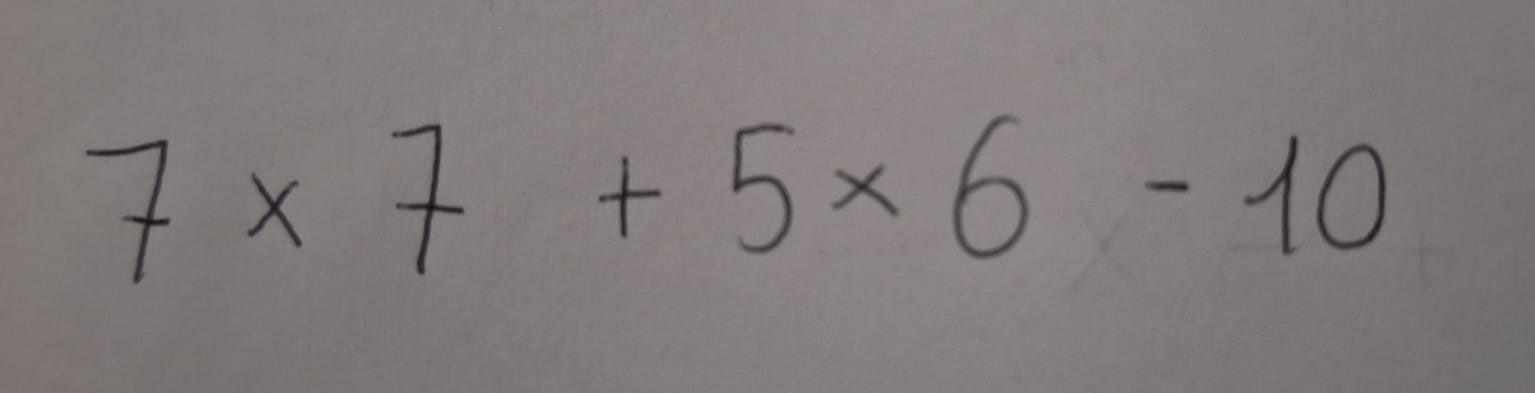 7 × 7 + 5 × 6 - 10